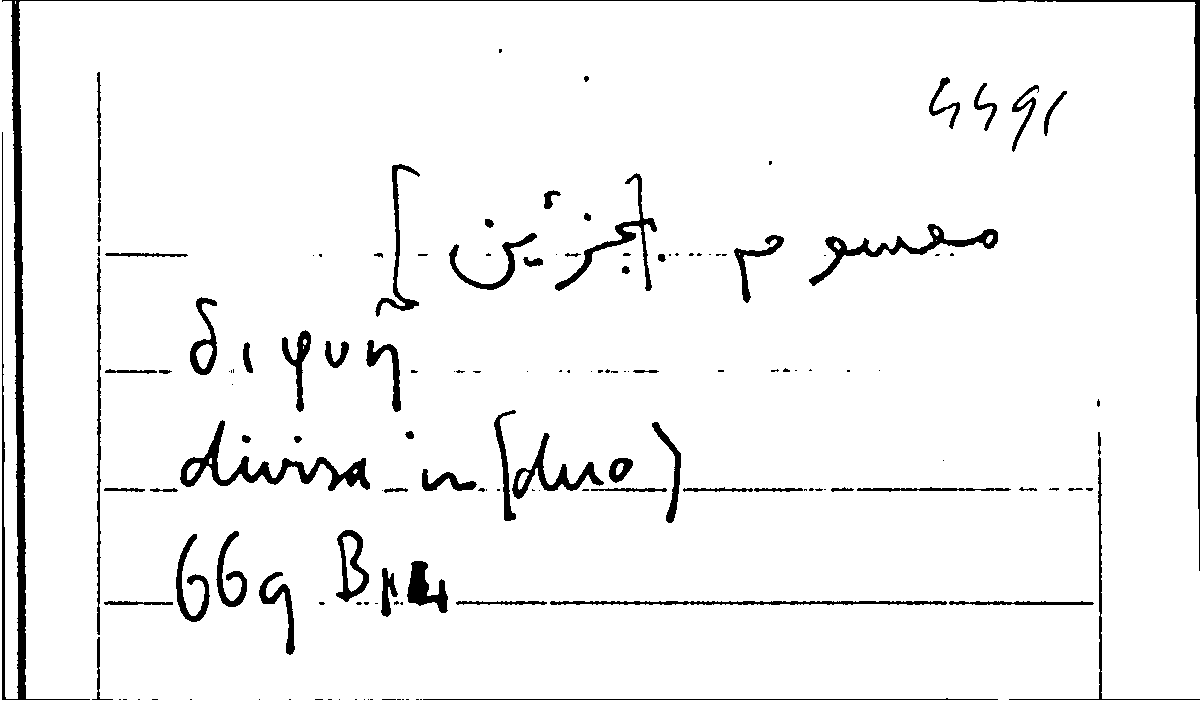 مقسوم [بجزئين]
διφυῆ
divisa in [duo]
669 B